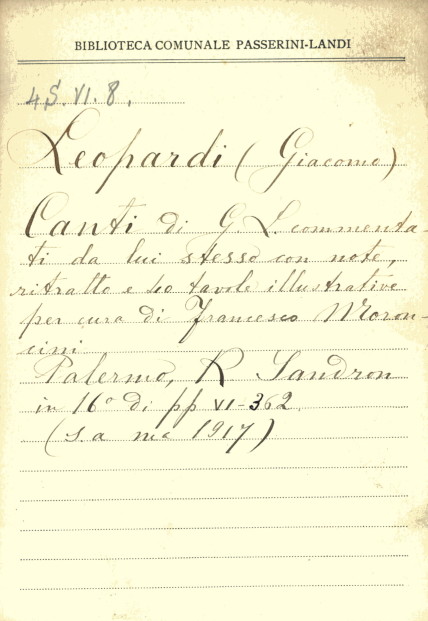 BIBLIOTECA COMUNALE PASSERINI-LANDI
4S. VI. 8.
Leopardi (Giacomo)
Canti di G. L. commenta-
ti da lui stesso con note,
ritratto e 40 tavole illustrative
per cura di Francesco Moron-
cini
Palermo, R Sandron
in 16° di pp VI-362.
(s. a ma 1917)